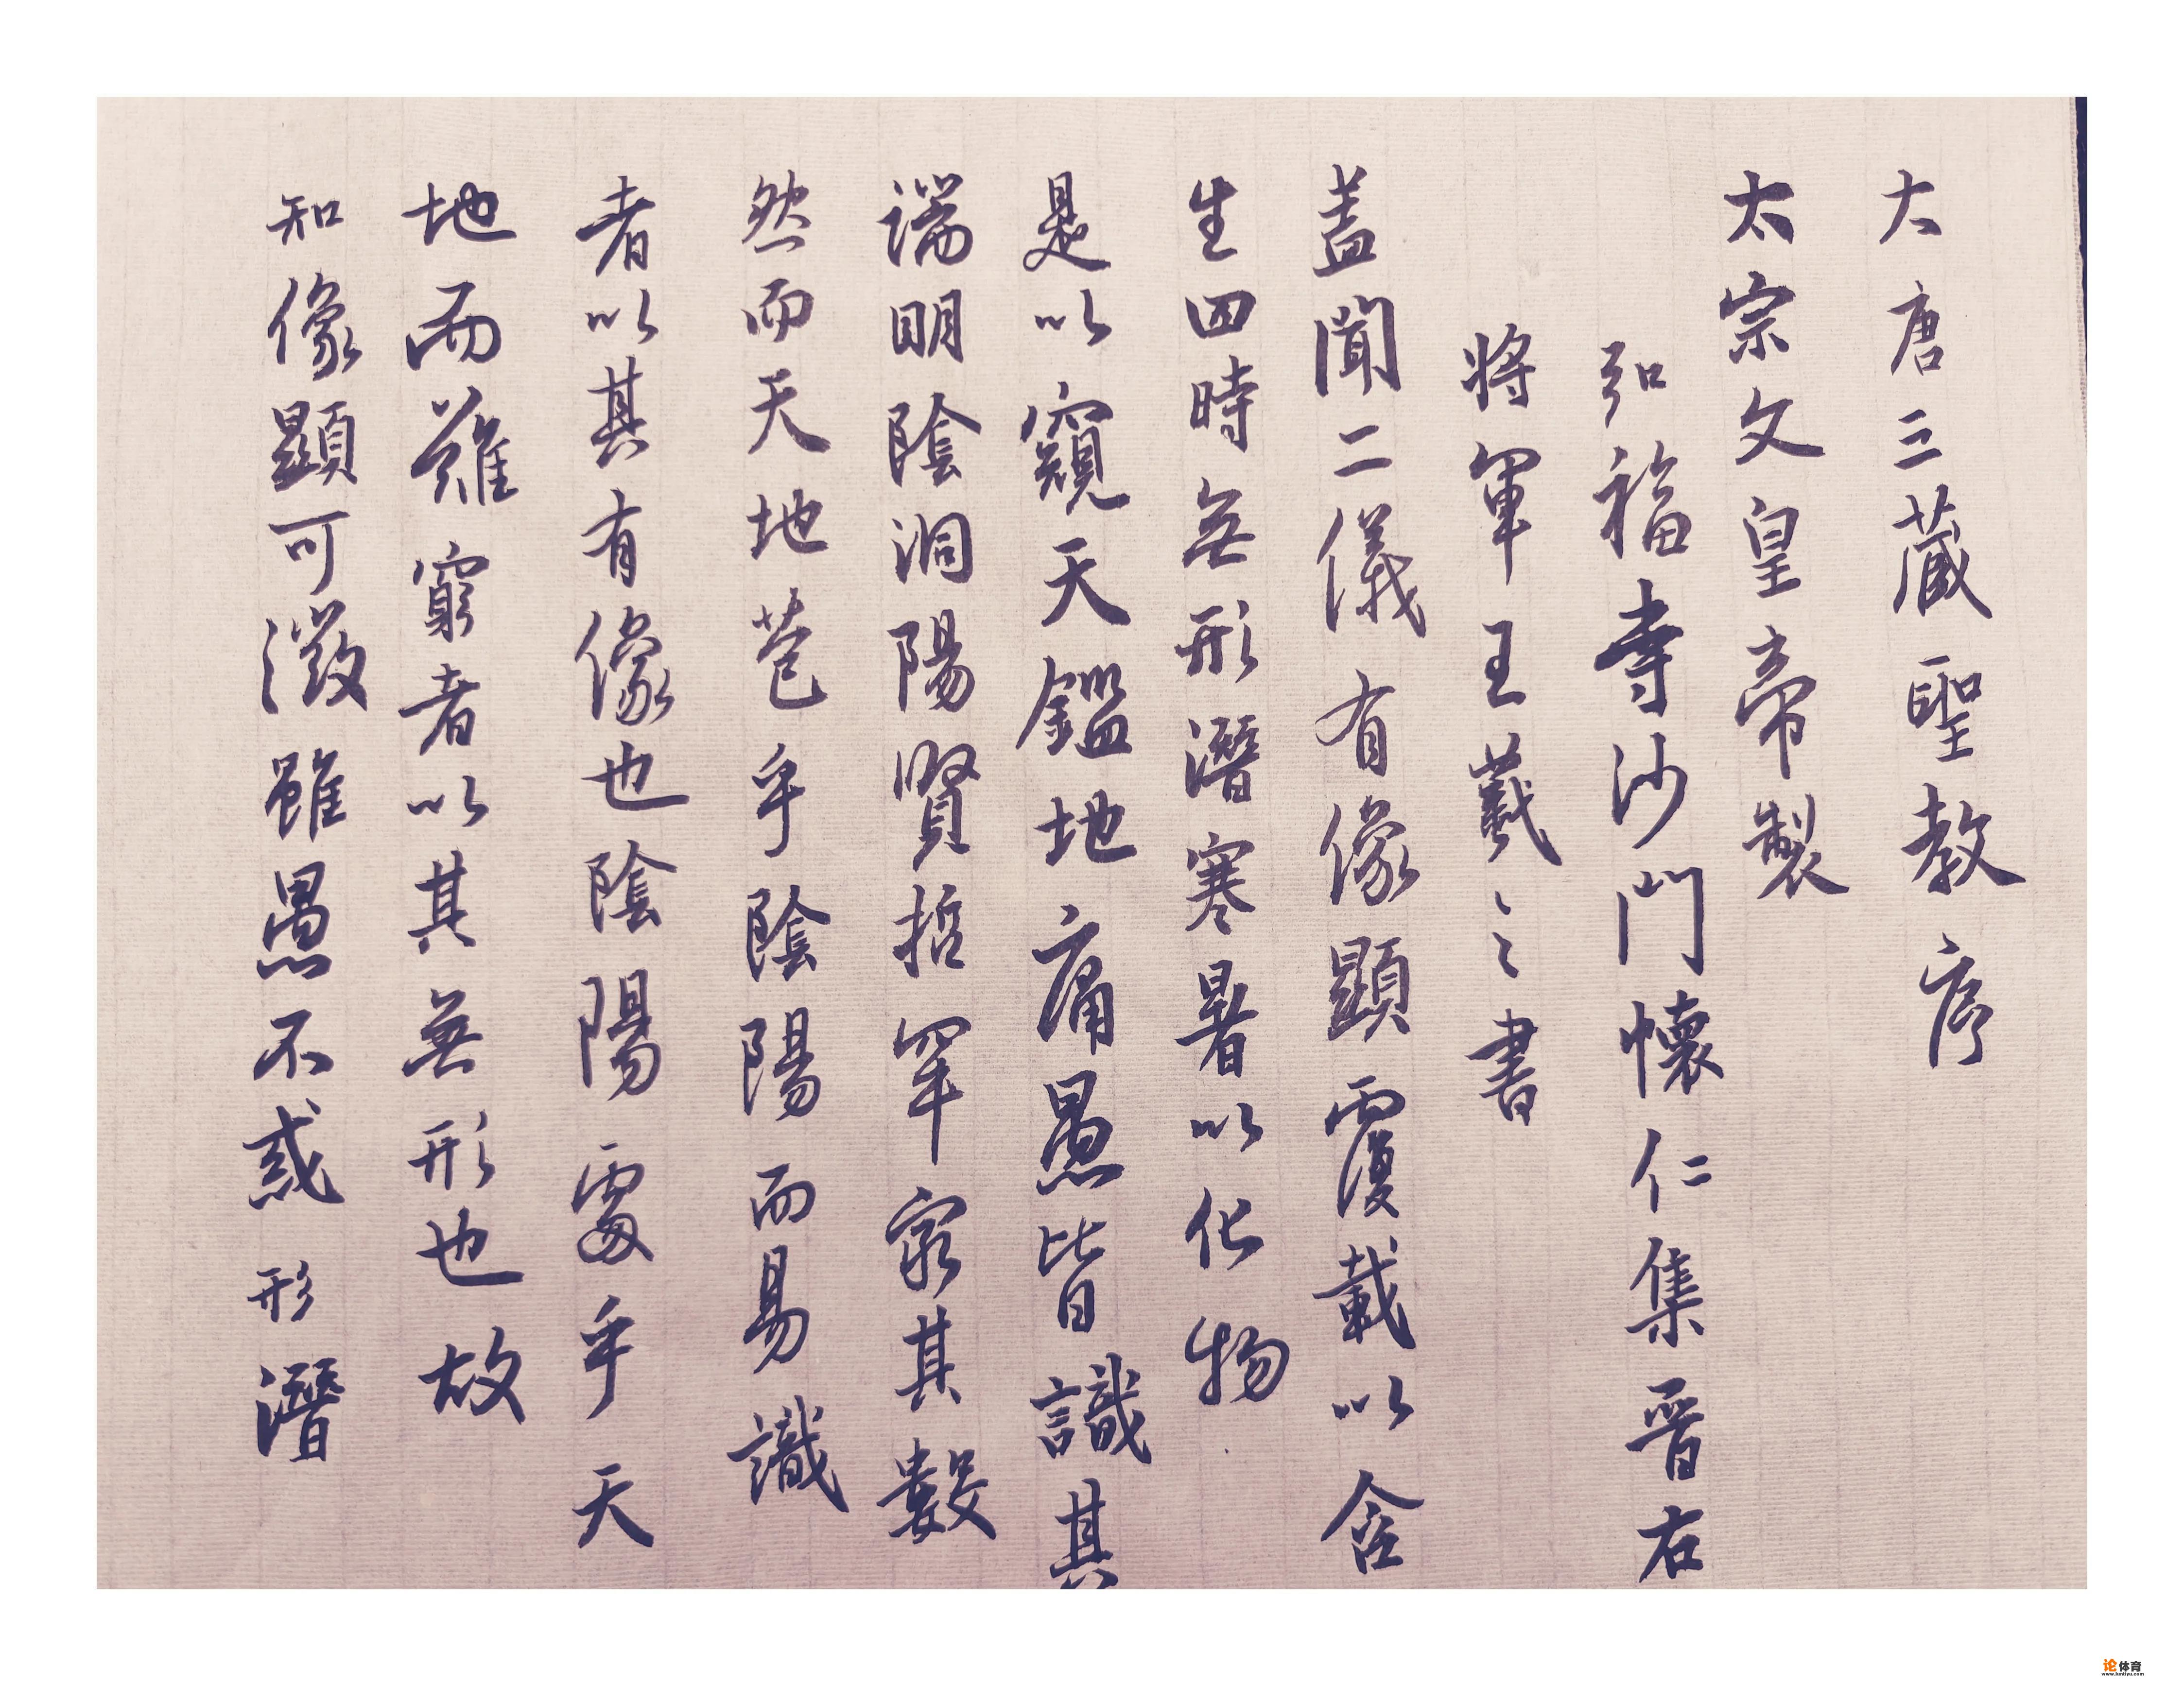 大唐三藏聖教序
太宗文皇帝製
弘福寺沙門懷仁集晉右
將軍王羲之書
蓋聞二儀有像顯覆載以含
生四時無形潛寒暑以化物
是以窺天鑑地庸愚皆識其
端明陰洞陽賢哲罕窮其數
然而天地苞乎陰陽而易識
者以其有像也陰陽處乎天
地而難窮者以其無形也故
知像顯可徵雖愚不惑形潛
论体育
www.luntiyu.com